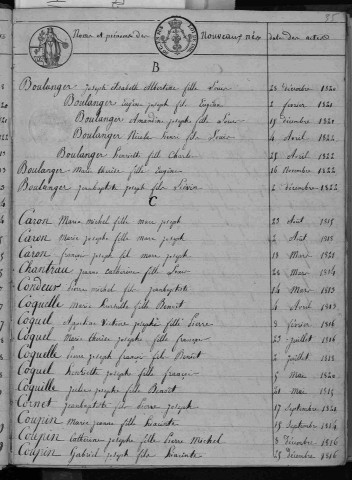 Noms et prénoms des Nouveaux nés date des actes
B
Boulanger Joseph Isabelle Albertine fille Louis 28 décembre 1820
Boulanger Eugène joseph fils Eugène 2 février 1821
Boulanger Amandine joseph fille 15 décembre 1821
Boulanger Nicolas fils Louis 4 Avril 1822
Boulanger Henriette fille Charles 25 Avril 1822
Boulanger Marie Thérèse fille Eugène 16 Novembre 1822
Boulanger Jeanbaptiste joseph fils 2 décembre 1822
C
Caron Marie michel fille marc joseph 23 Août 1815
Caron Marie josephe fille marc joseph 2 Août 1818
Caron françois joseph fils marc joseph 18 Mars 1821
Chantrau jeanne catherine fille Louis 28 Mars 1814
Condeur Pierre michel fils jeanbaptiste 14 Mars 1813
Coquelle Marie fille Benoit 4 Avril 1813
Coquel Augustine Victoire josephe fille Pierre 8 février 1816
Coquel Marie thérèse josephe fille françois 23 juillet 1816
Coquelle Pierre joseph françois fils Benoit 2 juillet 1818
Coquel Henriette josephe fille françois 5 Mai 1820
Coquille Jules joseph fils Benoit 21 Mai 1815
Cornet jeanbaptiste fils Pierre joseph 17 Septembre 1820
Coupin Marie jeanne fille hiacinte 15 Septembre 1814
Coupin Catherine josephe fille Pierre Michel 8 décembre 1816
Coupin Gabriel joseph fils hiacinte 25 Décembre 1816